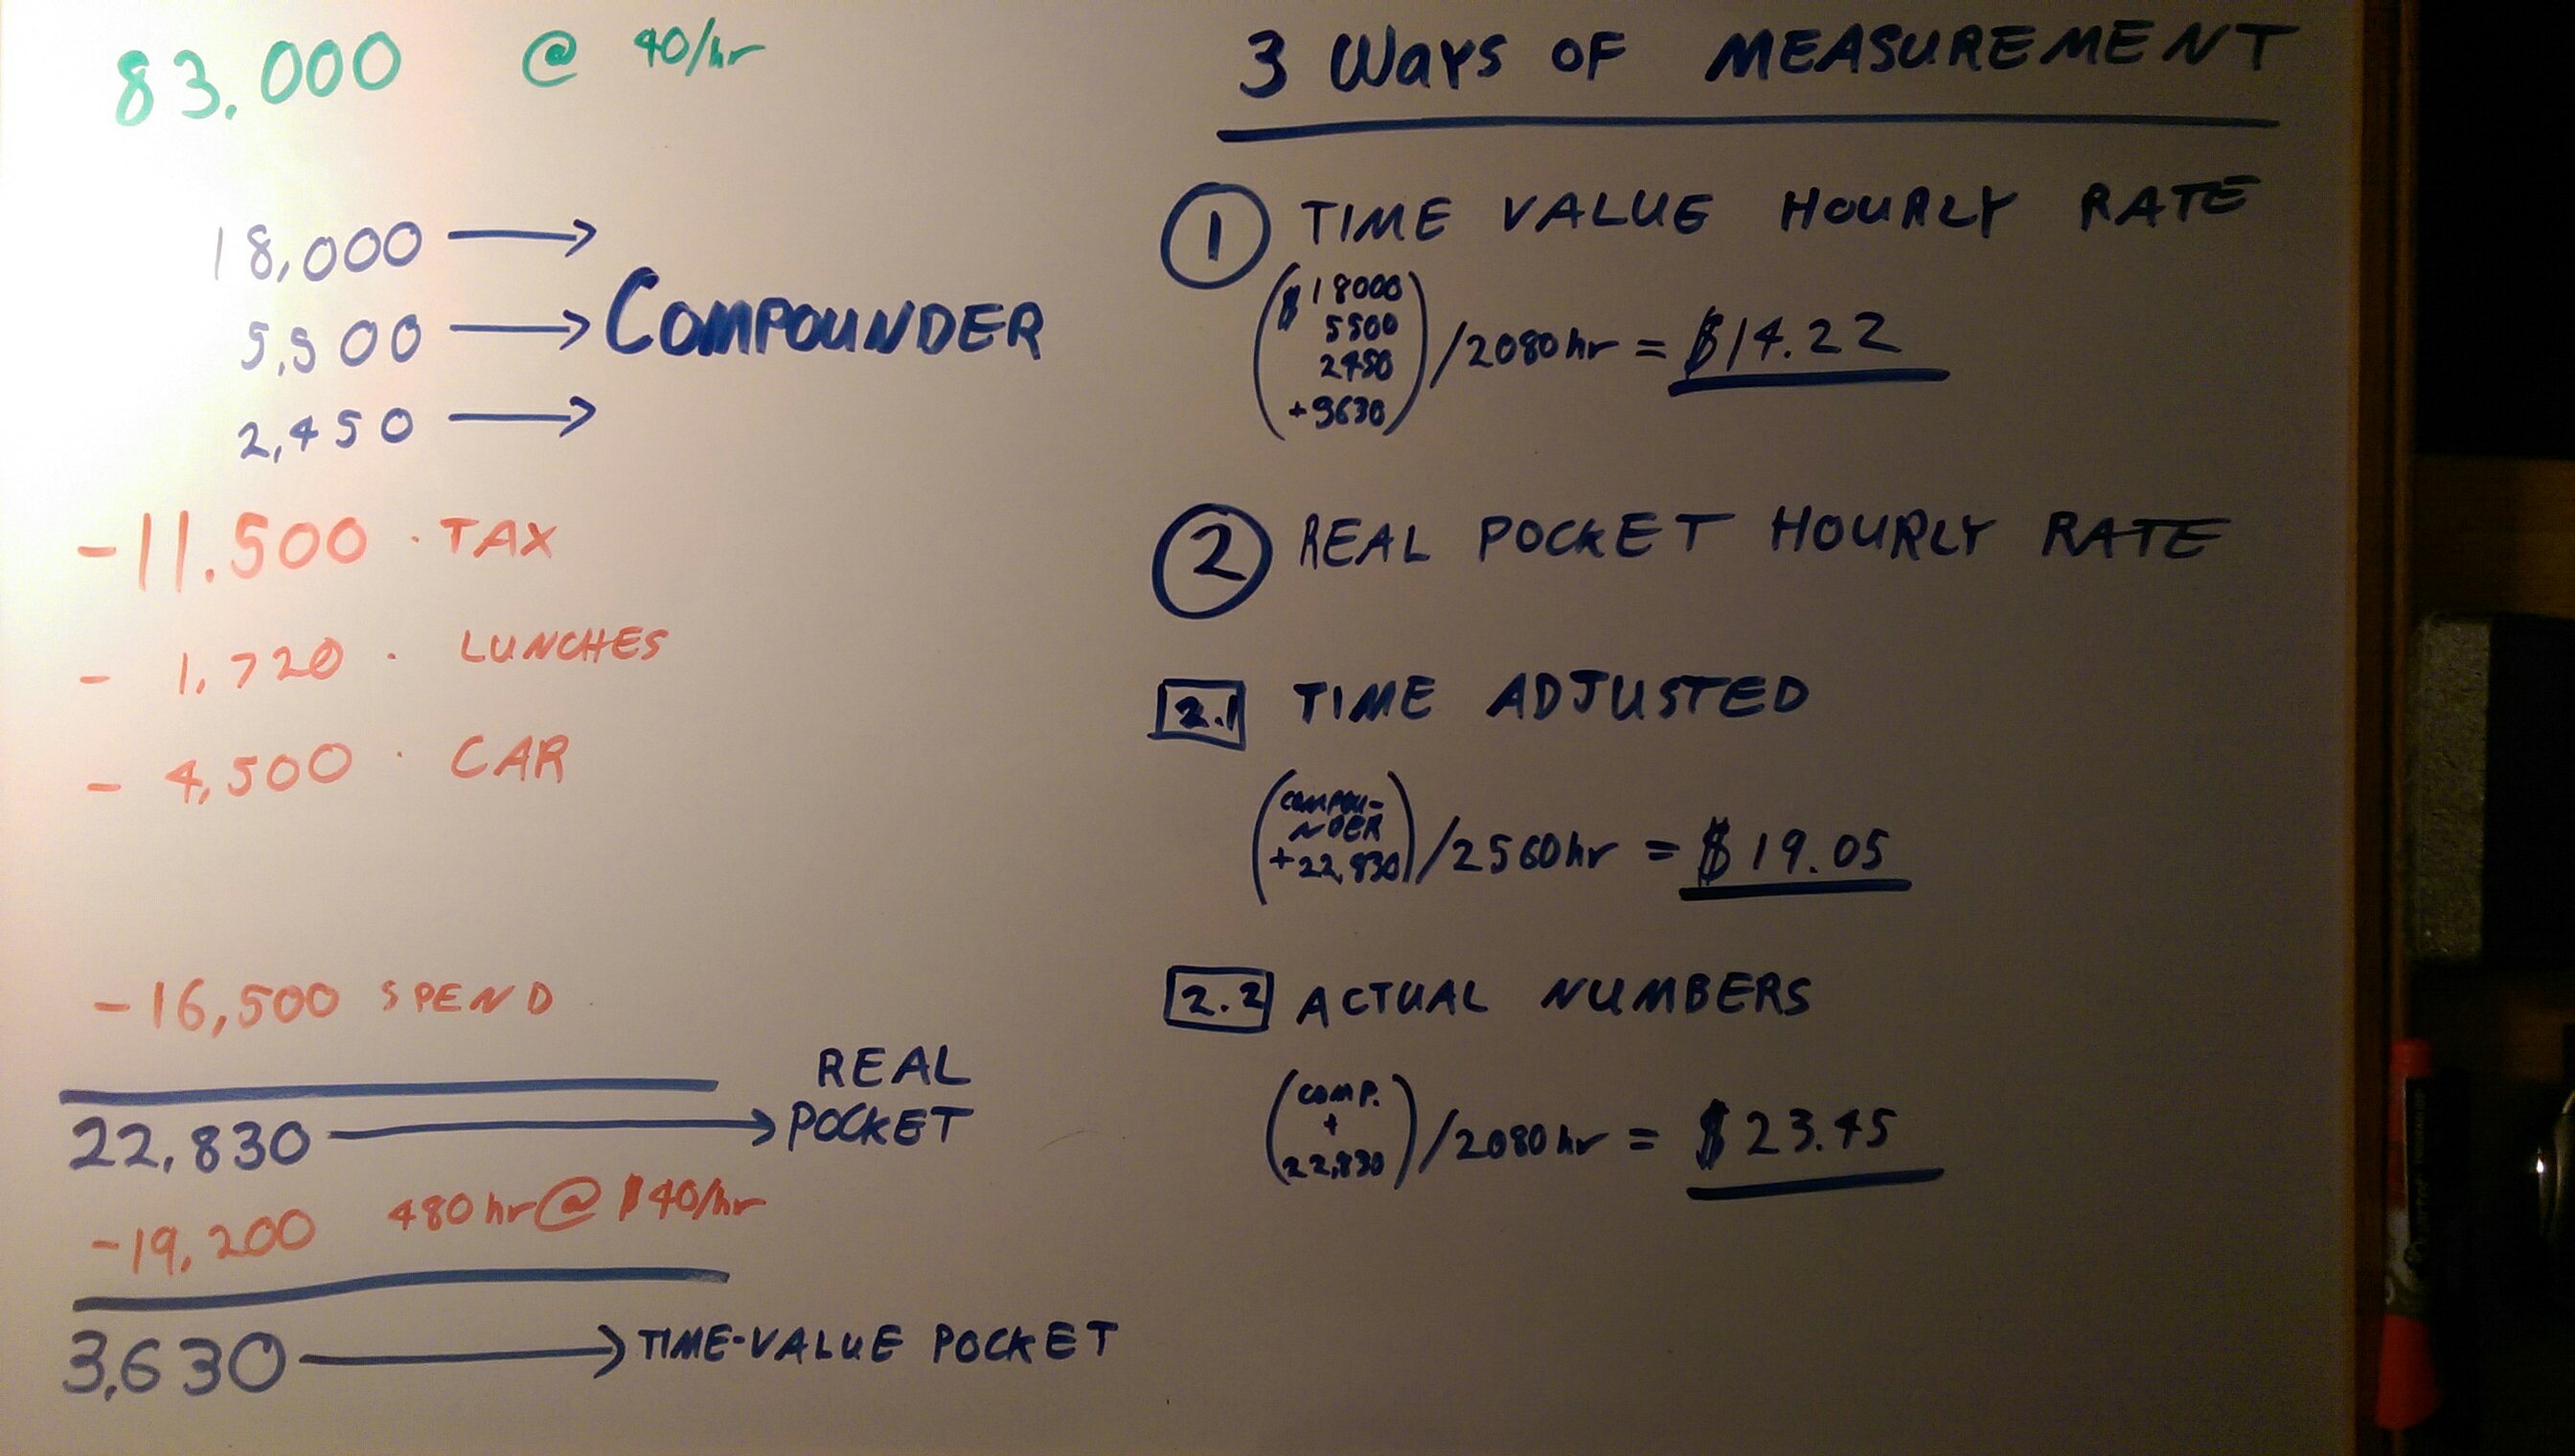 83.000 @ 40/hr
18,000 →
5,500 → COMPOUNDER
2,450 →
-11.500 · TAX
- 1,720 · LUNCHES
- 4,500 · CAR
-16,500 SPEND
22,830 → REAL POCKET
-19,200 480hr@ $40/hr
3,630 → TIME-VALUE POCKET
3 WAYS OF MEASUREMENT
1 TIME VALUE HOURLY RATE
($18000
5500
2450
+3630) /2080hr = $14.22
2 REAL POCKET HOURLY RATE
2.1 TIME ADJUSTED
(COMPOU-
NDER
+22,830) /2560hr = $19.05
2.2 ACTUAL NUMBERS
(COMP.
+
22,830) /2080hr = $23.45